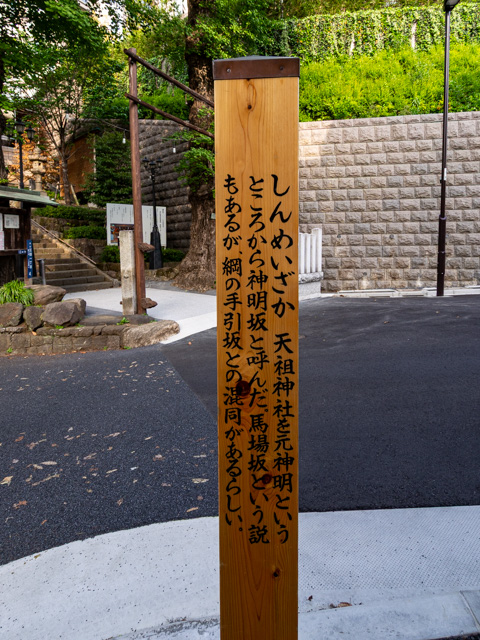 しんめいざか　天祖神社を元神明という
ところから神明坂と呼んだ。馬場坂という説
もあるが、綱の手引坂との混同があるらしい。